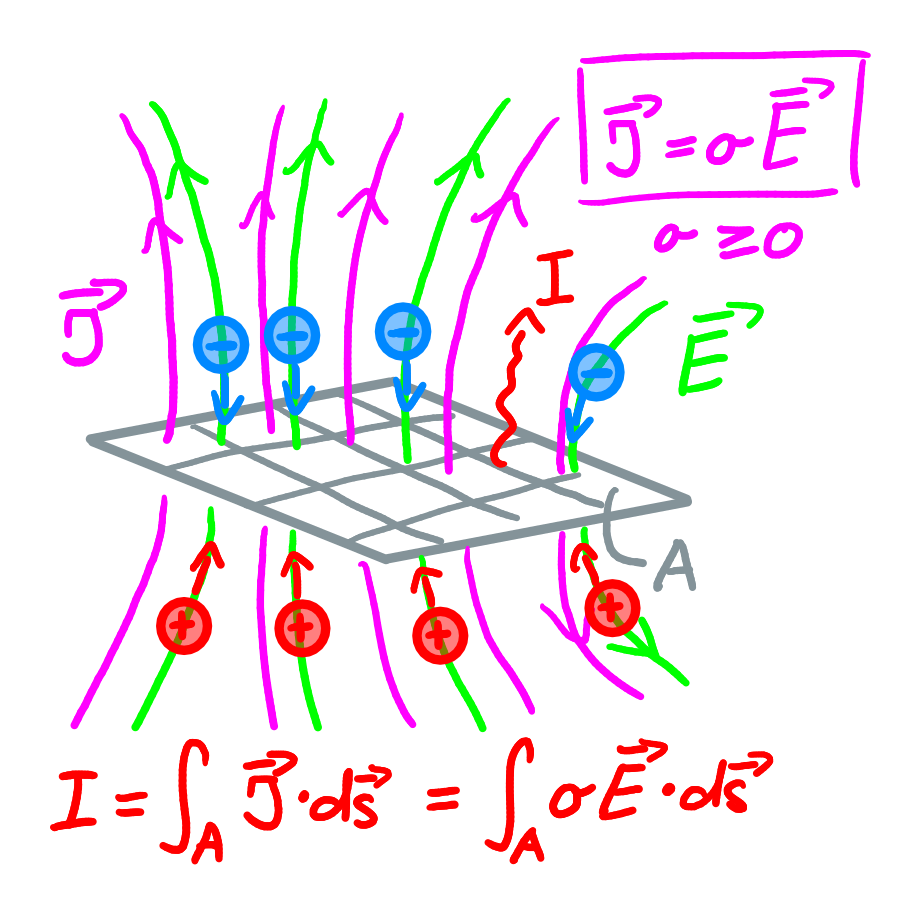 J⃗ = σE⃗
σ ≥ 0
I
J⃗
E⃗
− − − −
A
+ + + +
I = ∫_A J⃗ · ds⃗ = ∫_A σE⃗ · ds⃗